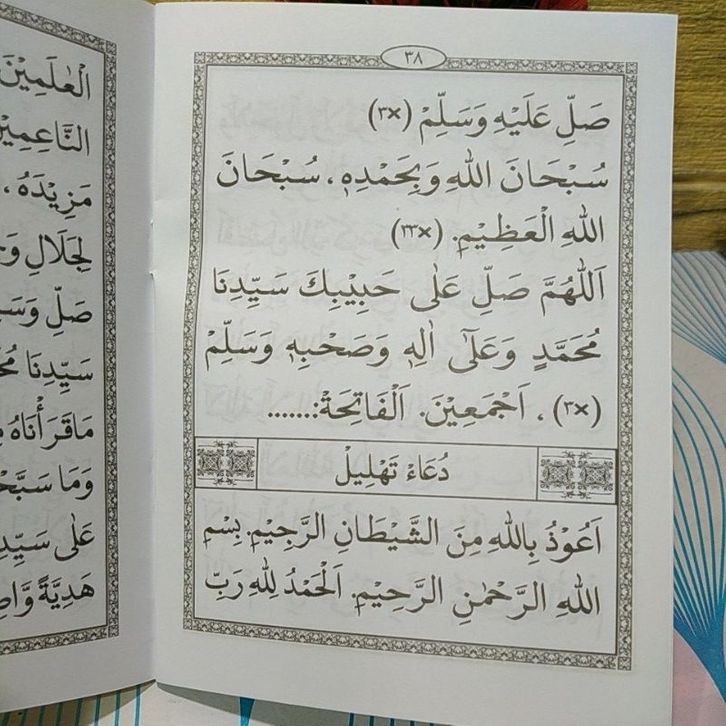 ٣٨
صَلِّ عَلَيْهِ وَسَلِّمْ (٣×)
سُبْحَانَ اللهِ وَبِحَمْدِهِ، سُبْحَانَ
اللهِ الْعَظِيْمِ. (٣٣×)
اَللّٰهُمَّ صَلِّ عَلٰى حَبِيْبِكَ سَيِّدِنَا
مُحَمَّدٍ وَعَلٰٓى اٰلِهٖ وَصَحْبِهٖ وَسَلِّمْ
(٣×)، اَجْمَعِيْنَ. اَلْفَاتِحَةْ:......
دُعَاءْ تَهْلِيْلْ
اَعُوْذُ بِاللهِ مِنَ الشَّيْطَانِ الرَّجِيْمِ. بِسْمِ
اللهِ الرَّحْمٰنِ الرَّحِيْمِ. اَلْحَمْدُ لِلّٰهِ رَبِّ
الْعٰلَمِيْنَ
النَّاعِمِيْنَ
مَزِيْدَهُ،
لِجَلَالِ
صَلِّ
سَيِّدِنَا
مَاقَرَأْنَاهُ
وَمَا
عَلٰى
هَدِيَّةً